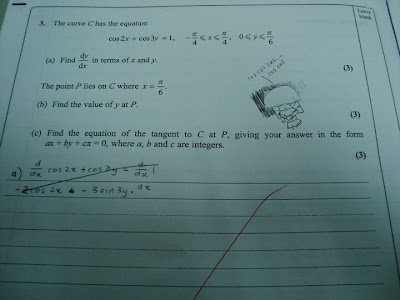 Leave blank
3. The curve C has the equation
cos2x + cos3y = 1, −π/4 ⩽ x ⩽ π/4, 0 ⩽ y ⩽ π/6
(a) Find dy/dx in terms of x and y.
(3)
The point P lies on C where x = π/6.
(b) Find the value of y at P.
(3)
(c) Find the equation of the tangent to C at P, giving your answer in the form
ax + by + cπ = 0, where a, b and c are integers.
(3)
a) d/dx cos 2x + cos 3y = d/dx 1
-2cos 2x - 3 sin 3y . dx